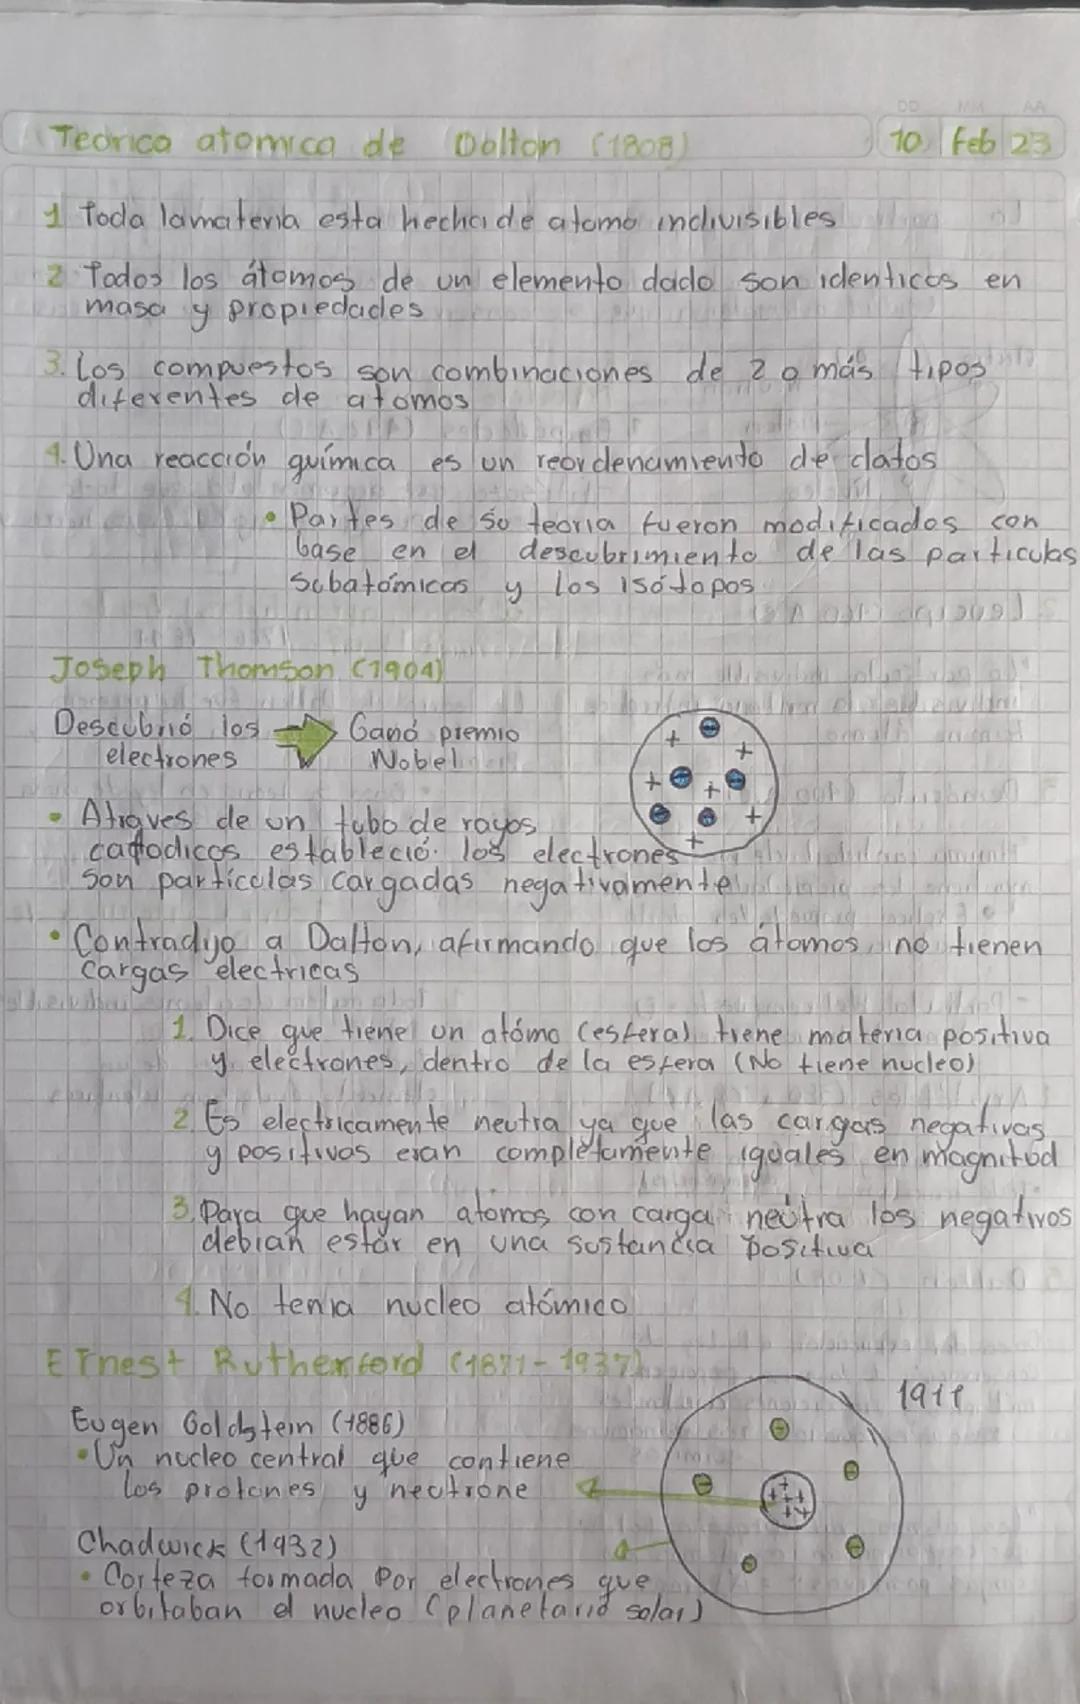 DD MM AA
Teorica atomica de Dalton (1808) 10 feb 23
1 Toda la materia esta hecha de atomo indivisibles
2 Todos los átomos de un elemento dado son identicos en
masa y propiedades
3. Los compuestos son combinaciones de 2 o más tipos
diferentes de atomos
4. Una reacción química es un reordenamiento de datos
• Partes de su teoria fueron modificados con
base en el descubrimiento de las particulas
subatómicas y los isótopos
Joseph Thomson (1904)
Descubrió los Ganó premio
electrones Nobel
• Atraves de un tubo de rayos
catodicos estableció los electrones
son partículas cargadas negativamente
• Contradyo a Dalton, afirmando que los átomos no tienen
cargas electricas
1. Dice que tiene un atómo (esfera) tiene materia positiva
y electrones, dentro de la esfera (No tiene nucleo)
2. Es electricamente neutra ya que las cargas negativas
y positivas eran completamente iguales en magnitud
3. Para que hayan atomos con carga neutra los negativos
debian estar en una sustancia positiva
4. No tenia nucleo atómico
Ernest Rutherford (1871-1937)
1911
Eugen Goldstein (1886)
• Un nucleo central que contiene
los protones y neutrone
Chadwick (1932)
• Corteza formada por electrones que
orbitaban el nucleo (planetario solar)